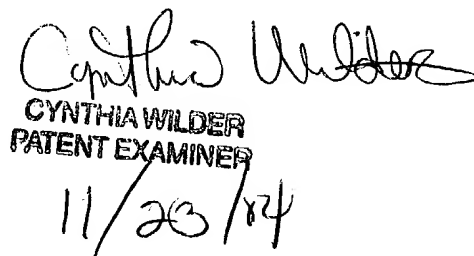 Cynthia Wilder
CYNTHIA WILDER
PATENT EXAMINER
11/23/04